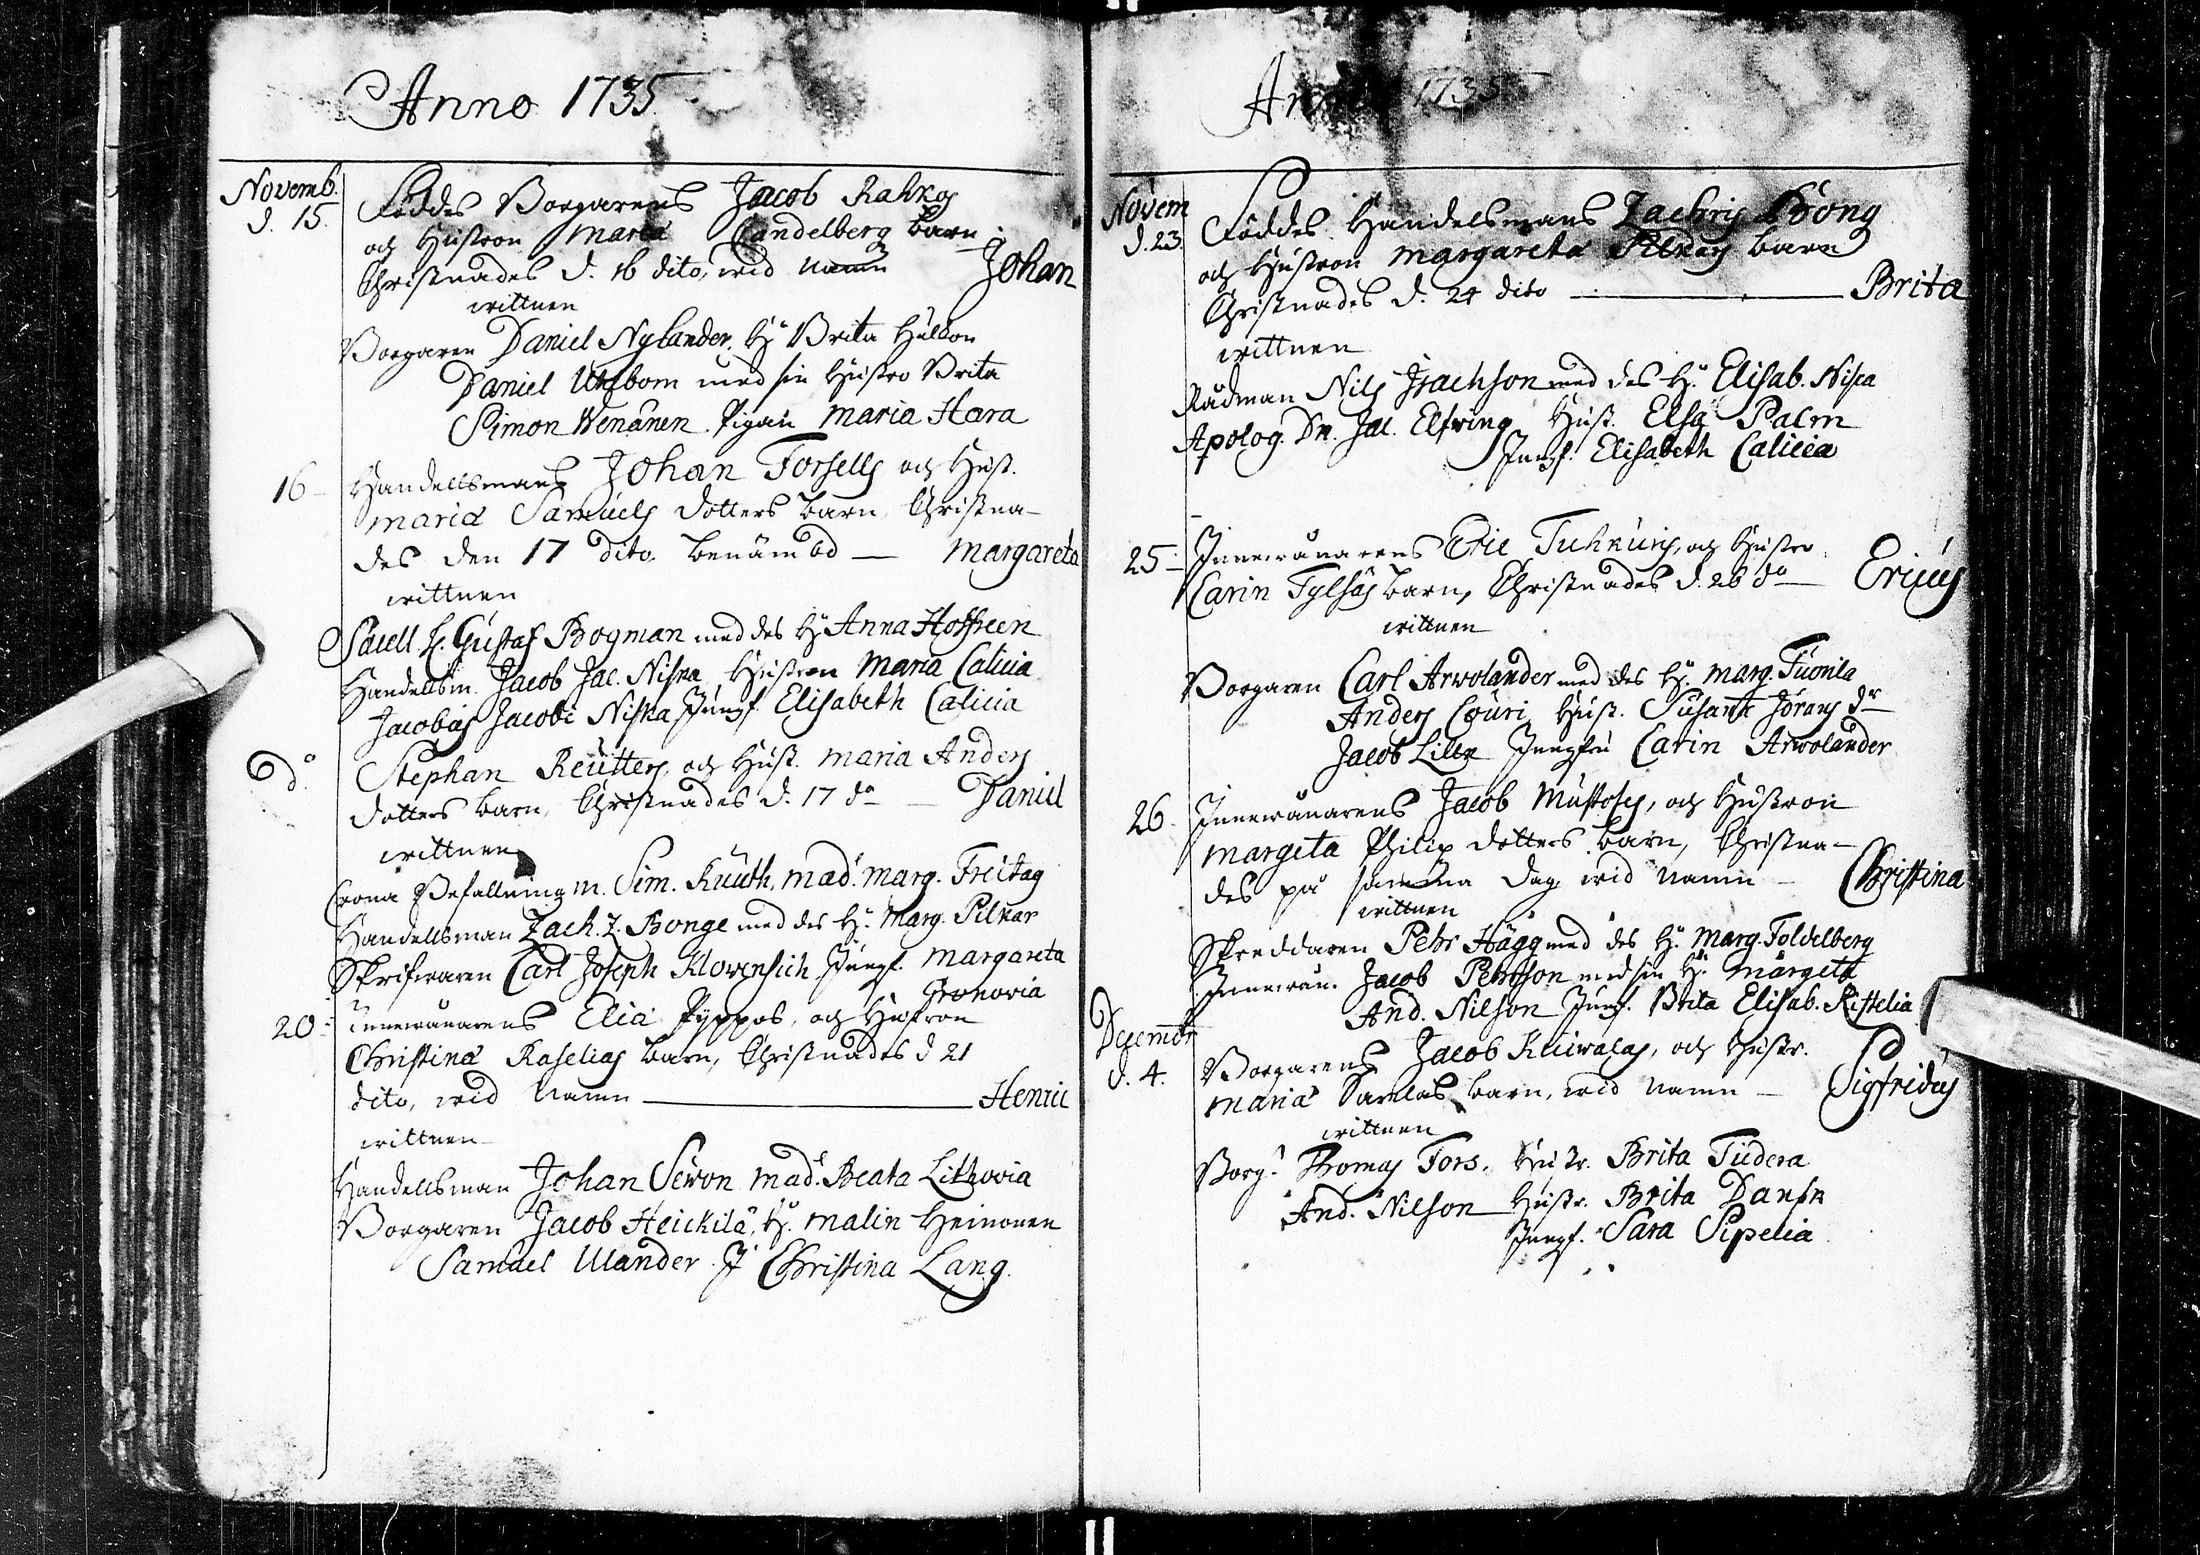 Anno 1735
Novemb. d. 15. Föddes Borgarens Jacob Rahkos
och Hustron Maria Candelberg barn
Christnades d. 16 dito, wid namn Johan
wittnen
Borgaren Daniel Nylander. H. Brita Hulkon
Daniel Utzbom med sin Hustro Brita
Simon Wenänen. Pigan Maria Hara
16 Handellsmans Johan Forsells och Hust.
Maria Samuels dotters barn, Christna-
des den 17 dito. benämbd — Margareta
wittnen
H. Gustaf Bogman med des H. Anna Hoffreen
Handellsm. Jacob Jac. Niska Hustron Maria Calicia
Jacobus Jacobi Niska Jungf. Elisabeth Calicia
do Stephan Reutters, och Hust. Maria Anders
dotters barn, Christnades d. 17 do — Daniel
wittnen
Crono Befallning m. Sim. Kuuth, Mad. Marg. Freitag
Handellsman Zach. Z. Bonge med des H. Marg. Pilkar
Skrifwaren Carl Joseph Klowensich Jungf. Margareta
Gronovia
20 Innewånarens Elia Pyppos, och Hustron
Christina Raselias barn, Christnades d 21
dito, wid Namn — Henric
wittnen
Handellsman Johan Sewon Mad. Beata Lithovia
Borgaren Jacob Heickilä, H. Malin Heinonen
Samuel Ulander J. Christina Lang.
Anno 1735
Novem d. 23. Föddes Handelsmans Zachris Bong
och Hustron Margareta Pilkars barn
Christnades d. 24 dito — Brita
wittnen
Rådman Nils Isachson med des H. Elisab. Niska
Apolog. Dn. Jac. Elfwing Hust. Elsa Palm
Jungf. Elisabeth Calicia
25 Innewånarens Eric Tuhkuris, och Hustro
Carin Tylsäs barn, Christnades d. 26 do — Ericus
wittnen
Borgaren Carl Arwolander med des H. Marg. Tuonila
Anders Couri Hust. Susanna Jörans dr
Jacob Lilla Jungfru Carin Arwolander
26 Innewånarens Jacob Mustoses, och Hustron
Margeta Philip dotters barn, Christna-
des på samma dag wid namn — Christina
wittnen
Skreddaren Pehr Hägg med des H. Marg. Toldelberg
Innewån. Jacob Pehrsson med sin H. Margeta
And. Nilson Jungf. Brita Elisab. Kittelia
Decembr d. 4. Borgarens Jacob Kuiwalas, och Hustr.
Maria Sarklas barn, wid namn — Sigfridus
wittnen
Borg. Thomas Fors. Hustr. Brita Tudera
And. Nilson Hustr. Brita Dansk
Jungf. Sara Sipelia